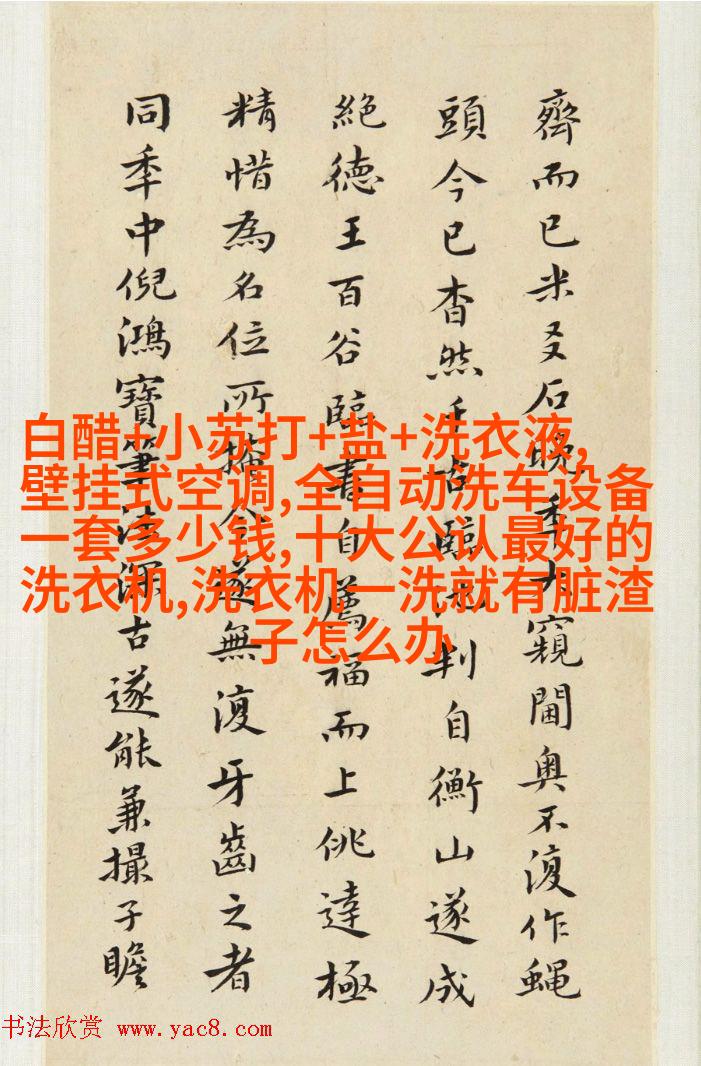 齊而已米友石晚季大窺閫奥不復作蝇
頭今已杳然千古臨池判自衡山遂成
絶德王百谷臨書自薦福而上佻達極
精惜為名位所掩今遂無復牙齒之者
同季中倪鴻寶筆法深古遂能兼撮子瞻
白醋+小苏打+盐+洗衣液,
壁挂式空调,全自动洗车设备
一套多少钱,十大公认最好的
洗衣机,洗衣机一洗就有脏渣
子怎么办
书法欣赏 www.yac8.com